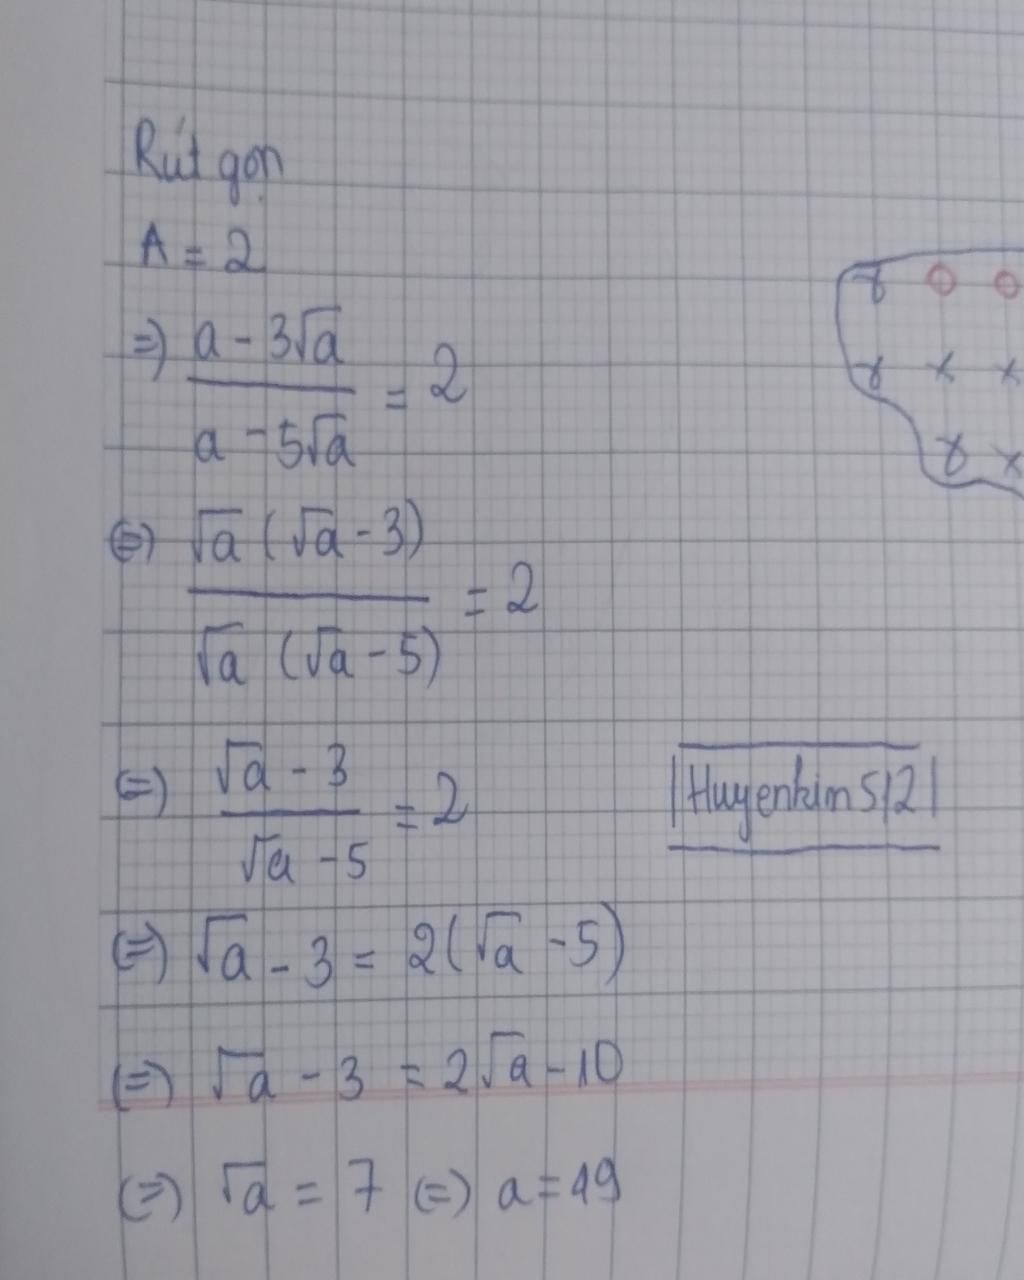 Rút gọn
A = 2
=) a - 3√a / a - 5√a = 2
(=) √a (√a - 3) / √a (√a - 5) = 2
(=) √a - 3 / √a - 5 = 2
|Huyenkim512|
(=) √a - 3 = 2(√a - 5)
(=) √a - 3 = 2√a - 10
(=) √a = 7 (=) a = 49